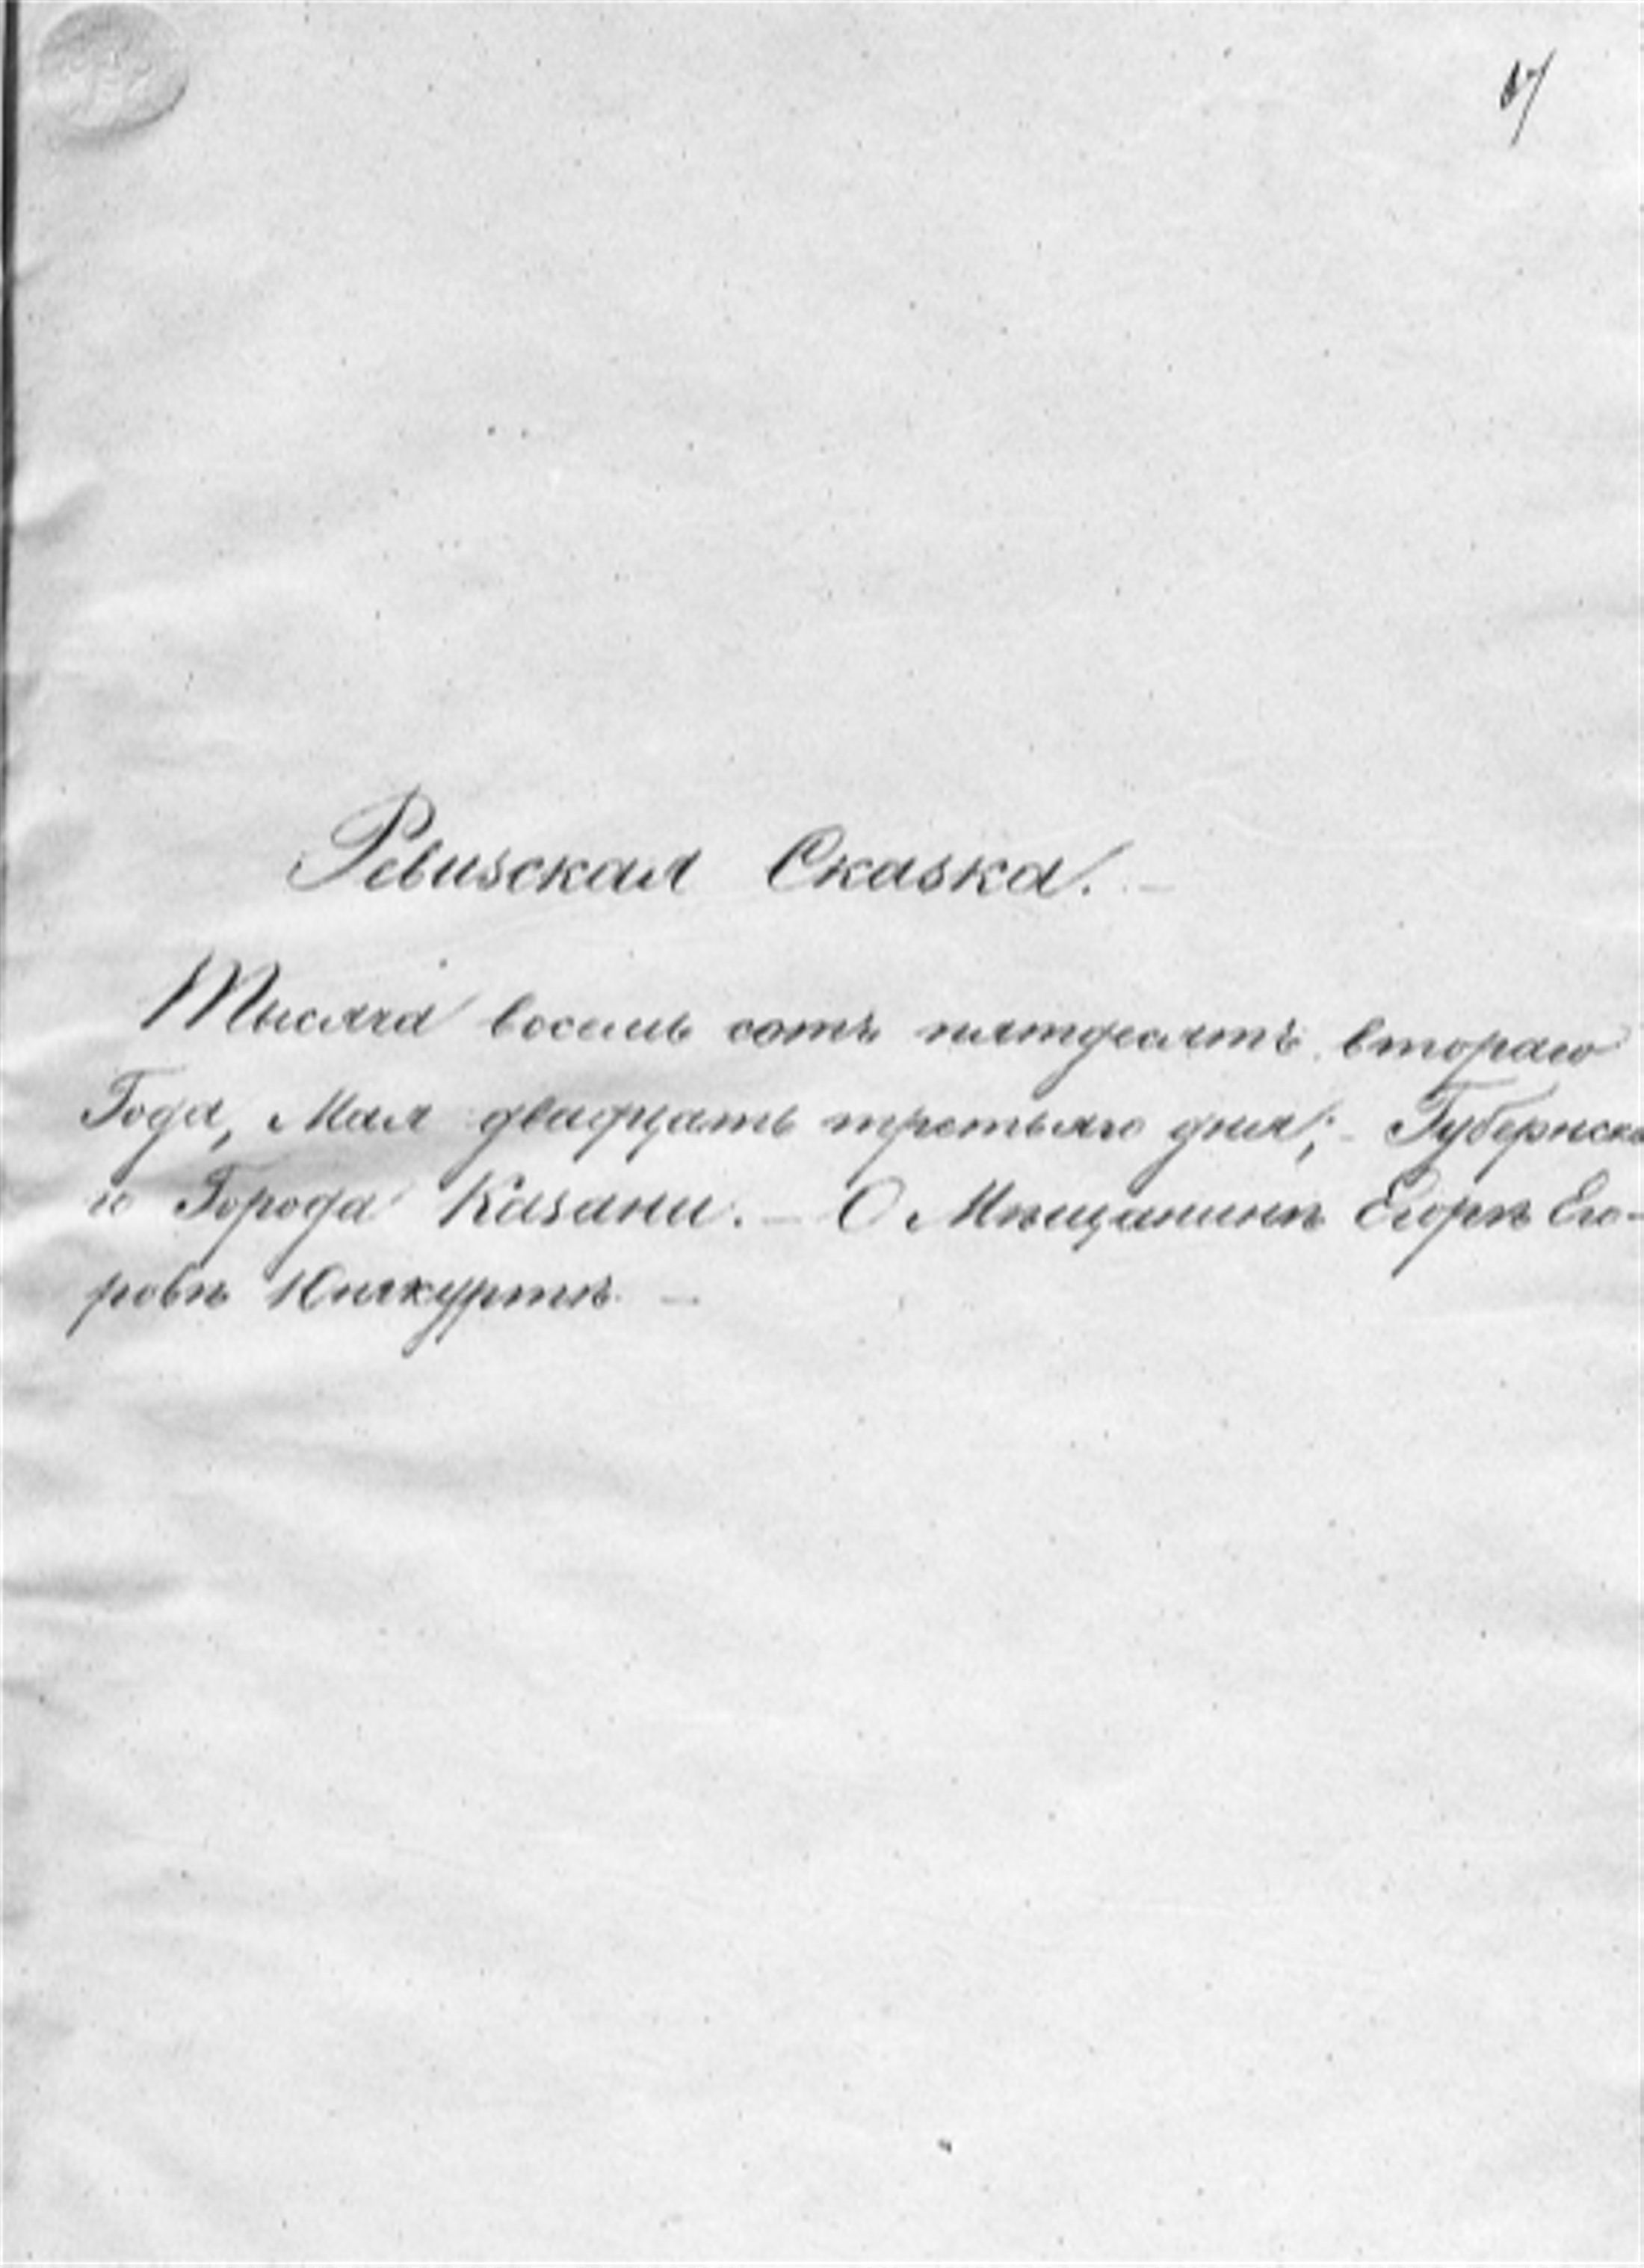 67
Ревизская Сказка. –
Тысяча восемь сотъ пятдесятъ втораго
Года, Мая двадцать третьяго дня; – Губернска
го Города Казани. – О Мѣщанинѣ Егорѣ Его-
ровѣ